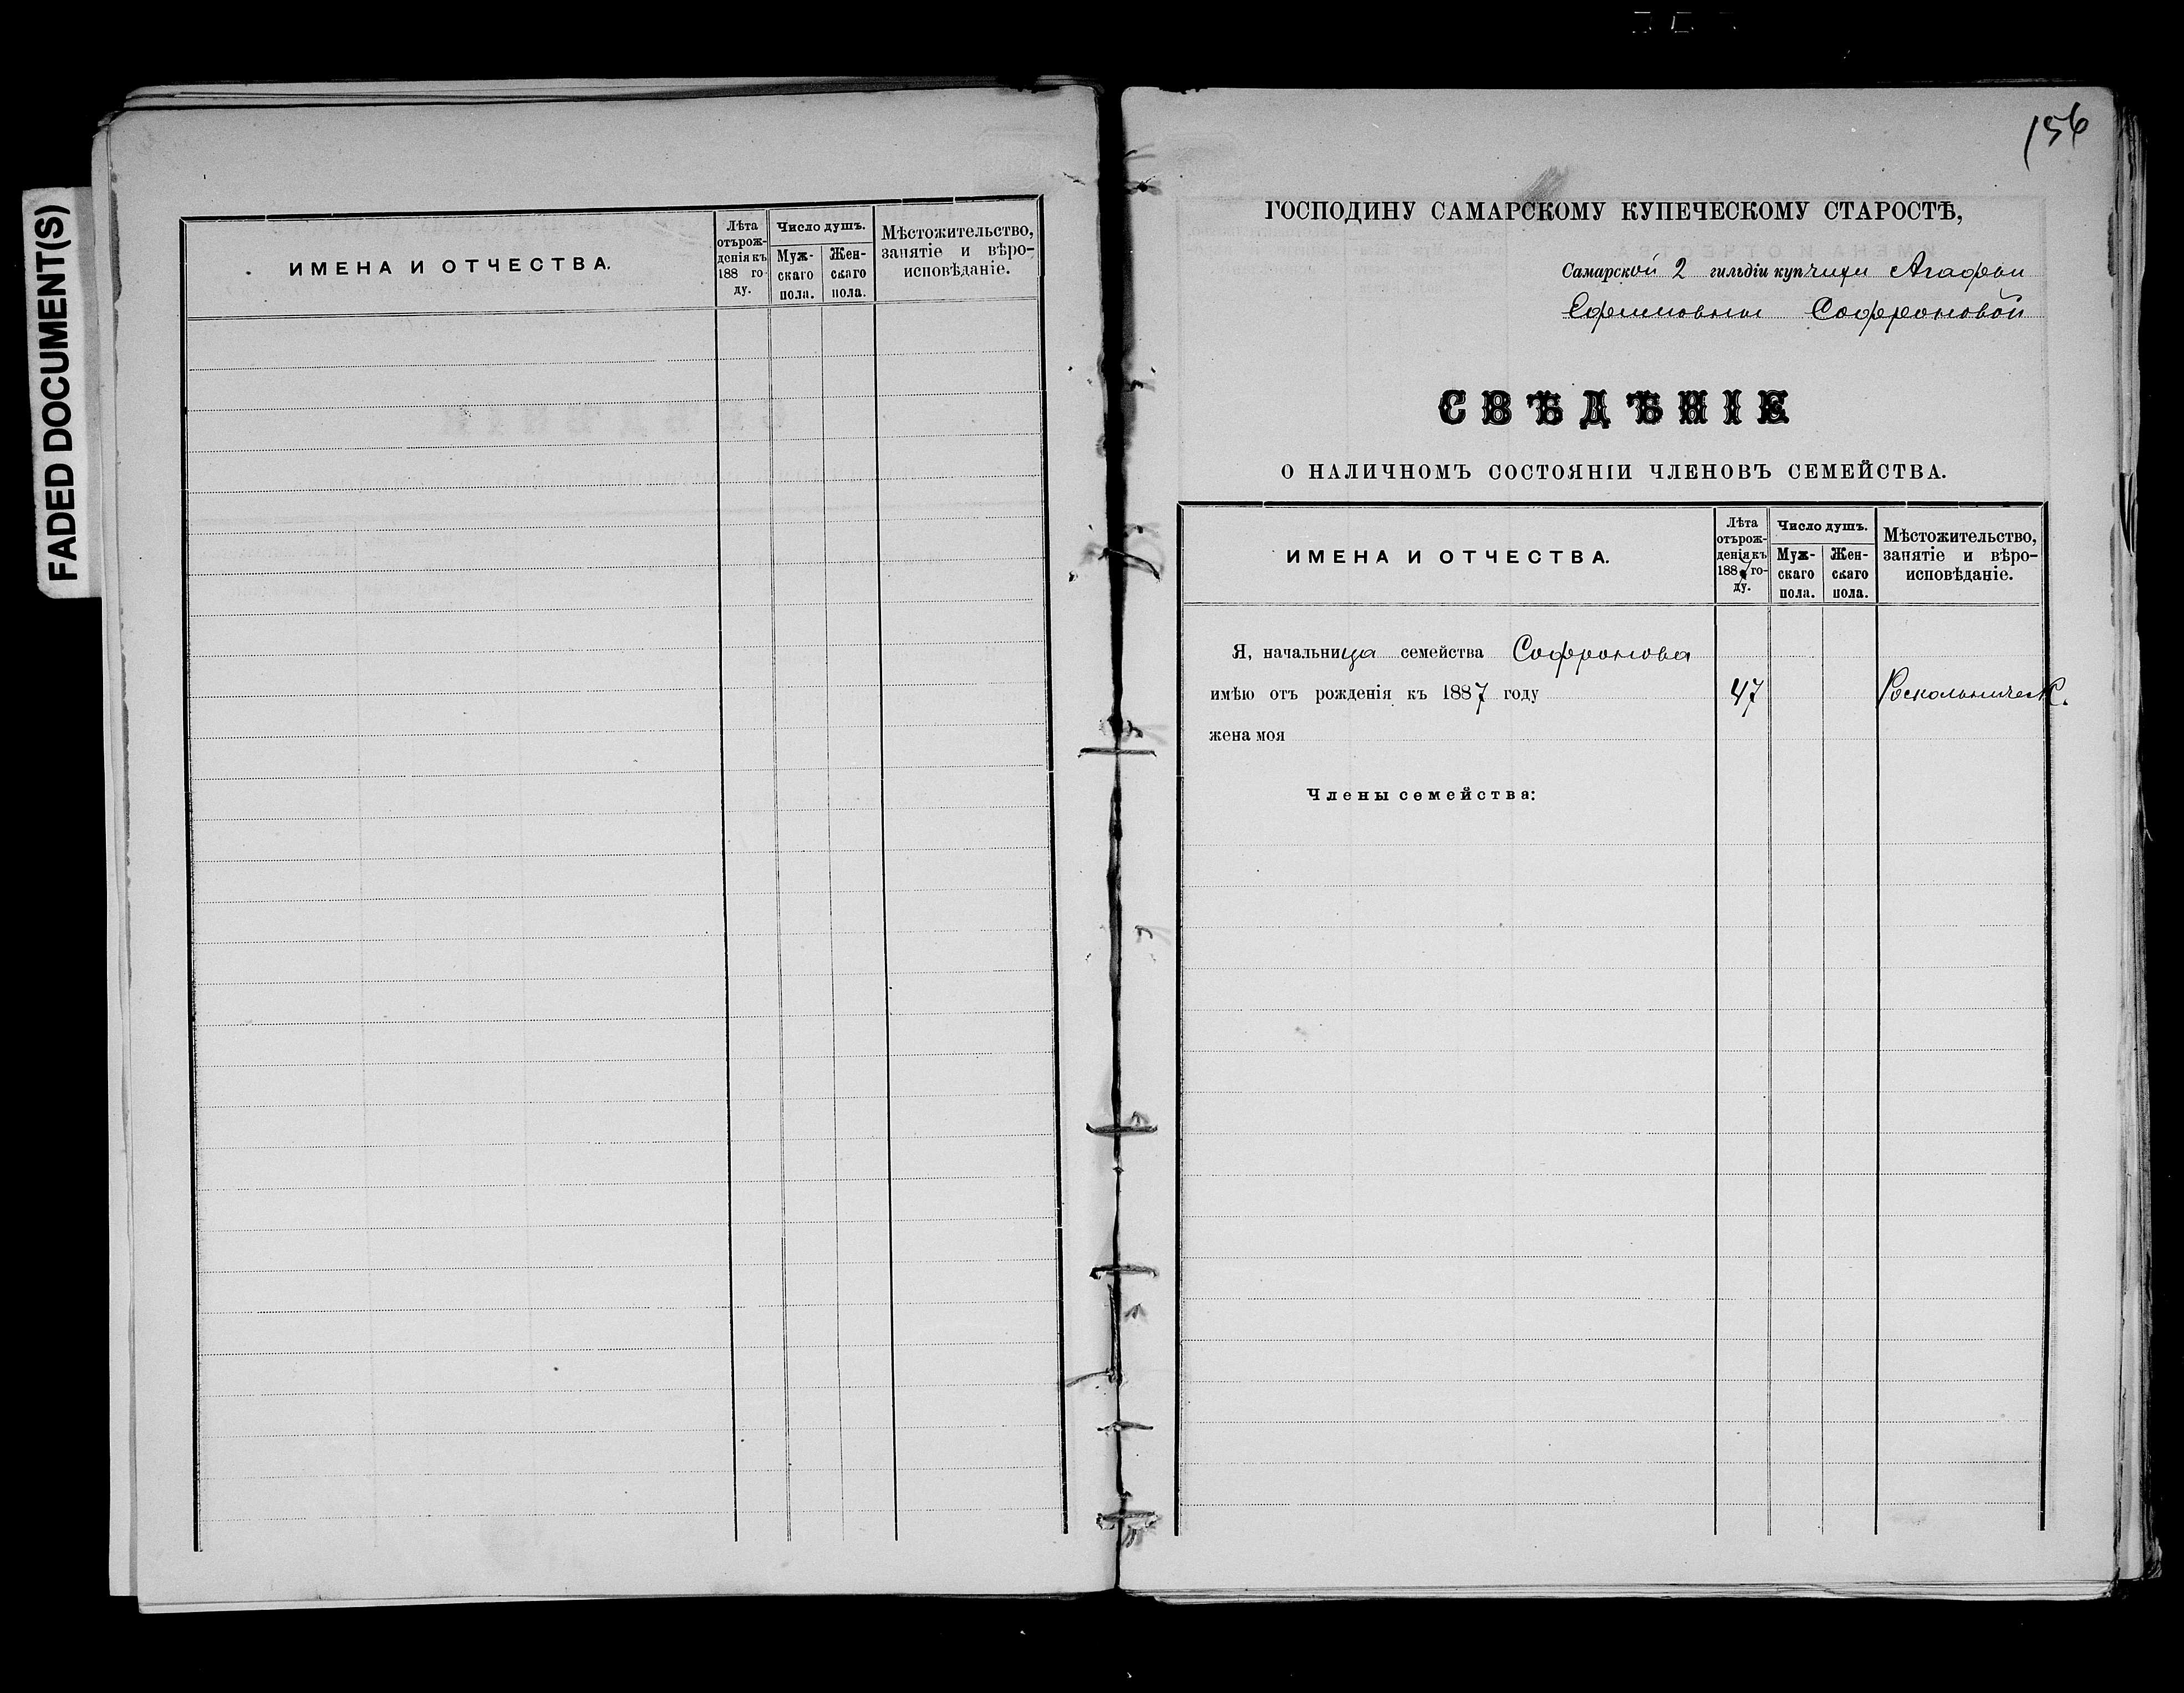 FADED DOCUMENT(S)
ИМЕНА И ОТЧЕСТВА.
Лѣта отърожденія къ 188 году.
Число душъ.
Мужскаго пола.
Женскаго пола.
Мѣстожительство, занятіе и вѣроисповѣданіе.
156
ГОСПОДИНУ САМАРСКОМУ КУПЕЧЕСКОМУ СТАРОСТѢ,
Самарской 2 гильдіи купчихи Агафьи
Ефимовны Софроновой
СВѢДѢНІЕ
О НАЛИЧНОМЪ СОСТОЯНІИ ЧЛЕНОВЪ СЕМЕЙСТВА.
ИМЕНА И ОТЧЕСТВА.
Лѣта отърожденія къ 1887 году.
Число душъ.
Мужскаго пола.
Женскаго пола.
Мѣстожительство, занятіе и вѣроисповѣданіе.
Я, начальница семейства Софронова
имѣю отъ рожденія къ 1887 году 47 Роскольническ.
жена моя
Члены семейства: